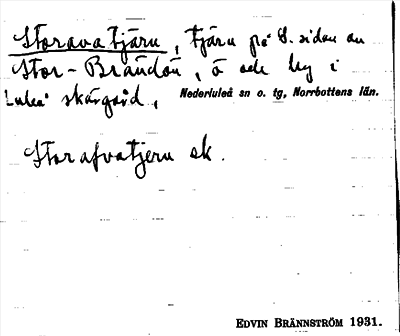 Storavatjärn, tjärn på S. sidan av
Stor-Brändön, ö och by i
Luleå skärgård, Nederluleå sn o. tg, Norrbottens län.
Storafvatjern sk.
EDVIN BRÄNNSTRÖM 1931.